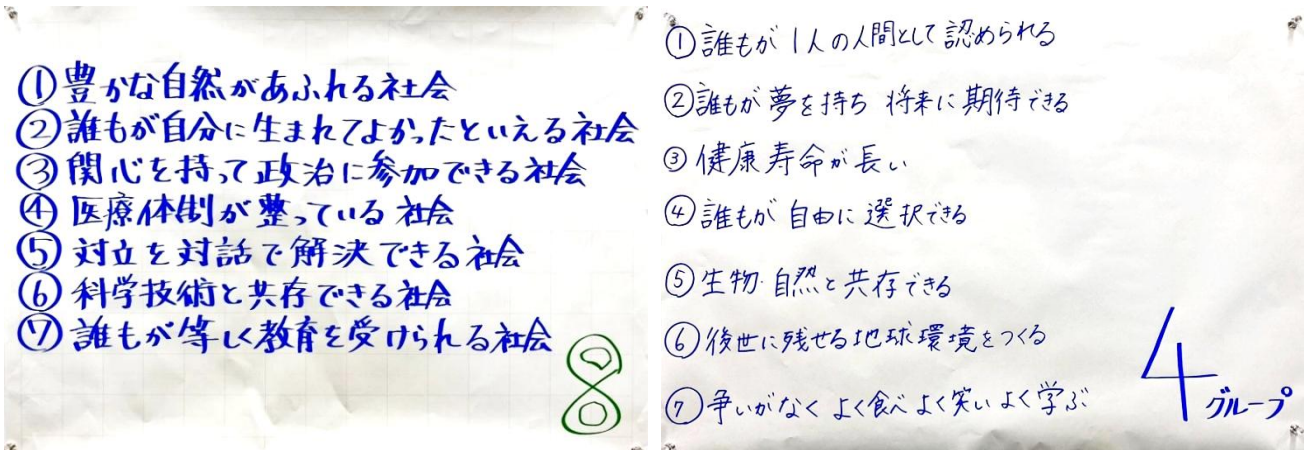 ①豊かな自然があふれる社会
②誰もが自分に生まれてよかったといえる社会
③関心を持って政治に参加できる社会
④医療体制が整っている社会
⑤対立を対話で解決できる社会
⑥科学技術と共存できる社会
⑦誰もが等しく教育を受けられる社会
8
①誰もが1人の人間として認められる
②誰もが夢を持ち 将来に期待できる
③健康寿命が長い
④誰もが自由に選択できる
⑤生物・自然と共存できる
⑥後世に残せる地球環境をつくる
⑦争いがなく よく食べ よく笑い よく学ぶ
4グループ